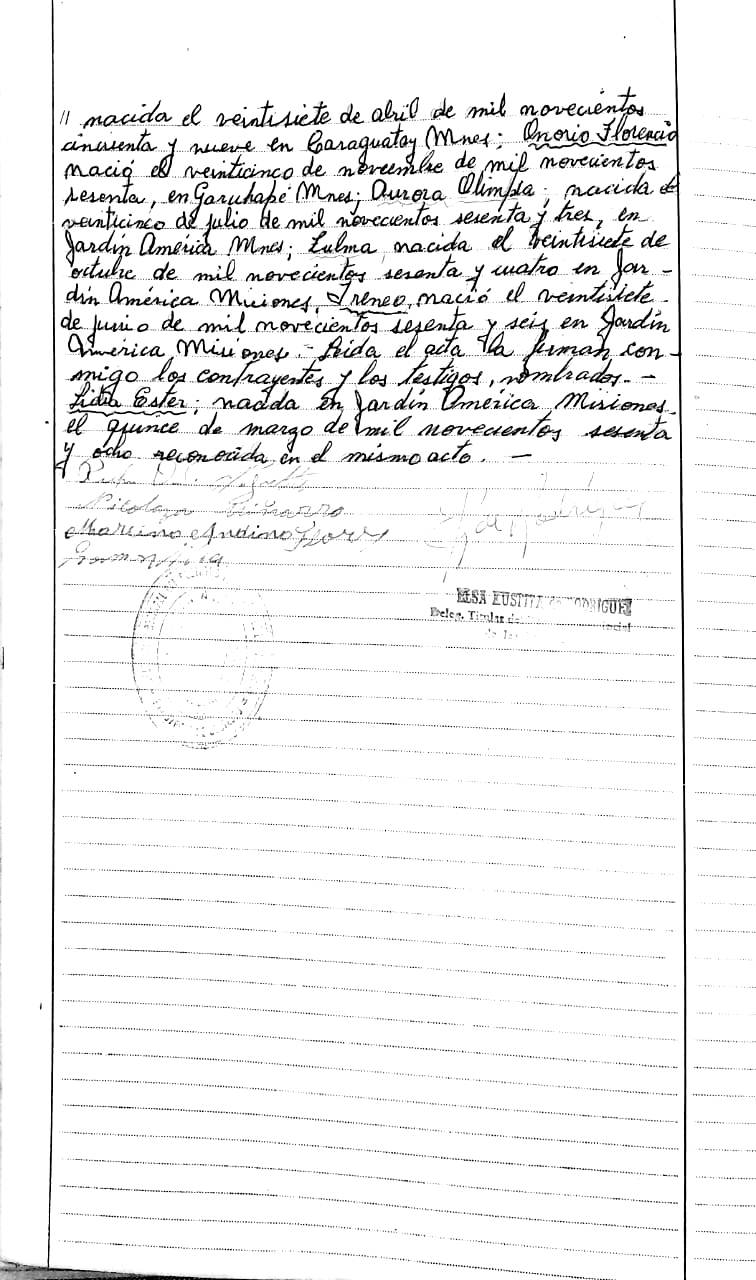 // nacida el veintisiete de abril de mil novecientos
cincuenta y nueve en Caraguatay Mnes; Onorio Florencio
nació el veinticinco de noviembre de mil novecientos
sesenta, en Garuhapé Mnes; Aurora Olimpia; nacida el
veinticinco de julio de mil novecientos sesenta y tres, en
Jardín América Mnes; Zulma, nacida el veintisiete de
octubre de mil novecientos sesenta y cuatro en Jar-
dín América Misiones, Ireneo, nació el veintisiete
de junio de mil novecientos sesenta y seis en Jardín
América Misiones.- Leida el acta la firman con-
migo los contrayentes y los testigos, nombrados.-
Lidia Ester; nacida en Jardín América Misiones
el quince de marzo de mil novecientos sesenta
y ocho reconocida en el mismo acto. -
Marcino Andino
RODRIGUEZ
Deleg. Titular